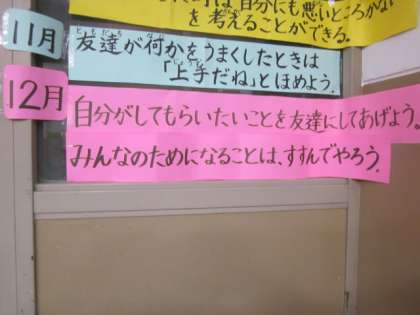 は自分にも悪いところがな
を考えることができる。
11月
友達が何かをうまくしたときは
「上手だね」とほめよう。
12月
自分がしてもらいたいことを友達にしてあげよう。
みんなのためになることは、すすんでやろう。